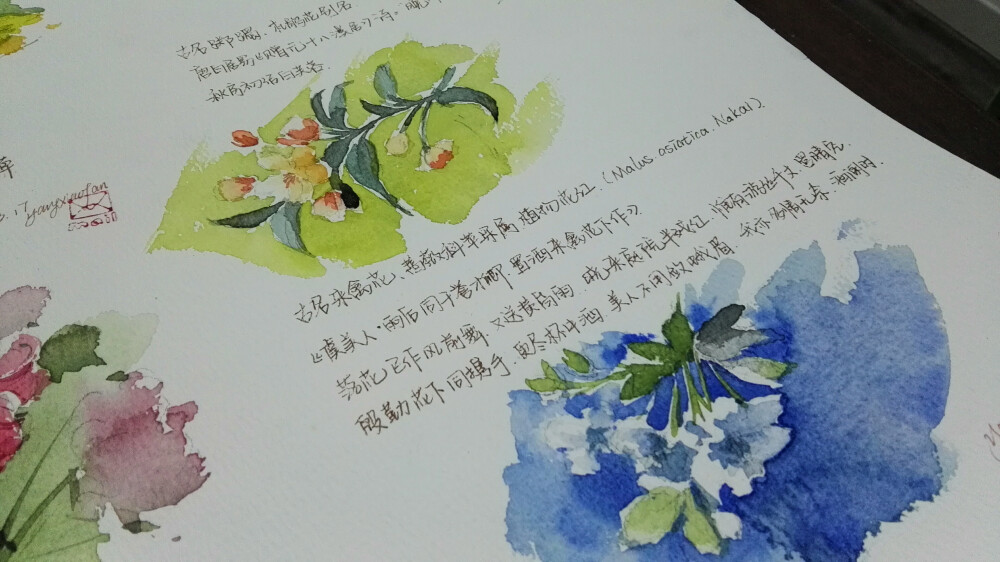 古名踯躅、杜鹃花别名
唐白居易《题元十八溪居》诗。晚
秋房初结白芙蓉.
.17 yangxiaofan
古名来禽花、蔷薇科苹果属植物花红.（Malus. asiatica. Nakai）.
《虞美人·雨后同干誉才卿置酒来禽花下作》.
落花已作风前舞.又送黄昏雨 晓来庭院半残红.惟有游丝千丈罥晴空.
殷勤花下同携手.更尽杯中酒 美人不用敛蛾眉.我亦多情无奈.酒阑时.